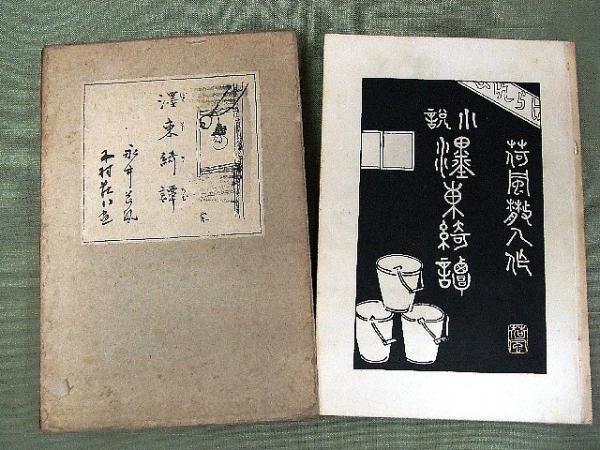 濹東綺譚
永井荷風
木村荘八画
荷風散人作
小説
濹東綺譚
荷風